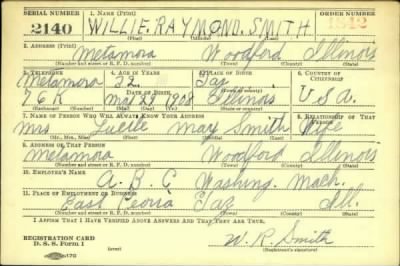 SERIAL NUMBER 1. NAME (Print) ORDER NUMBER
2140 WILLIE. RAYMOND. SMITH 1842
(First) (Middle) (Last)
2. ADDRESS (Print)
Metamora Woodford Illinois
(Number and street or R. F. D. number) (Town) (County) (State)
3. TELEPHONE 4. AGE IN YEARS 5. PLACE OF BIRTH 6. COUNTRY OF CITIZENSHIP
Metamora 32 Taz
DATE OF BIRTH
Mar 29 1908 Illinois U.S.A.
7. NAME OF PERSON WHO WILL ALWAYS KNOW YOUR ADDRESS 8. RELATIONSHIP OF THAT PERSON
Mrs Luelle May Smith Wife
(Mr., Mrs., Miss) (First) (Middle) (Last)
9. ADDRESS OF THAT PERSON
Metamora Woodford Illinois
(Number and street or R. F. D. number) (Town) (County) (State)
10. EMPLOYER'S NAME
A.B.C Washing. Mach.
11. PLACE OF EMPLOYMENT OR BUSINESS
East Peoria Taz Ill.
(Number and street or R. F. D. number) (Town) (County) (State)
I AFFIRM THAT I HAVE VERIFIED ABOVE ANSWERS AND THAT THEY ARE TRUE.
REGISTRATION CARD
D. S. S. Form 1
W. R. Smith
(Registrant's signature)